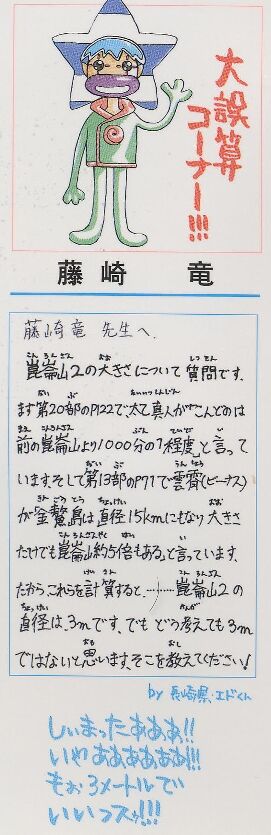 大誤算
コーナー!!!
藤崎 竜
藤崎竜 先生へ、
崑崙山2の大きさについて質問です。
まず第20部のP122で太乙真人が“こんどのは
前の崑崙山より1000分の1程度”と言って
います。そして第13部のP71で雲霄(ビーナス)
が“金鰲島は直径15kmにもなり大きさ
だけでも崑崙山の約5倍もある。”と言っています。
だからこれらを計算すると、……崑崙山2の
直径は、3mです。でもどう考えても3m
ではないと思います。そこを教えてください!
by 長崎県、エドくん
しぃまったあああ!!
いやああああああ!!!
もぉ3メートルで
いいっスゥ!!!